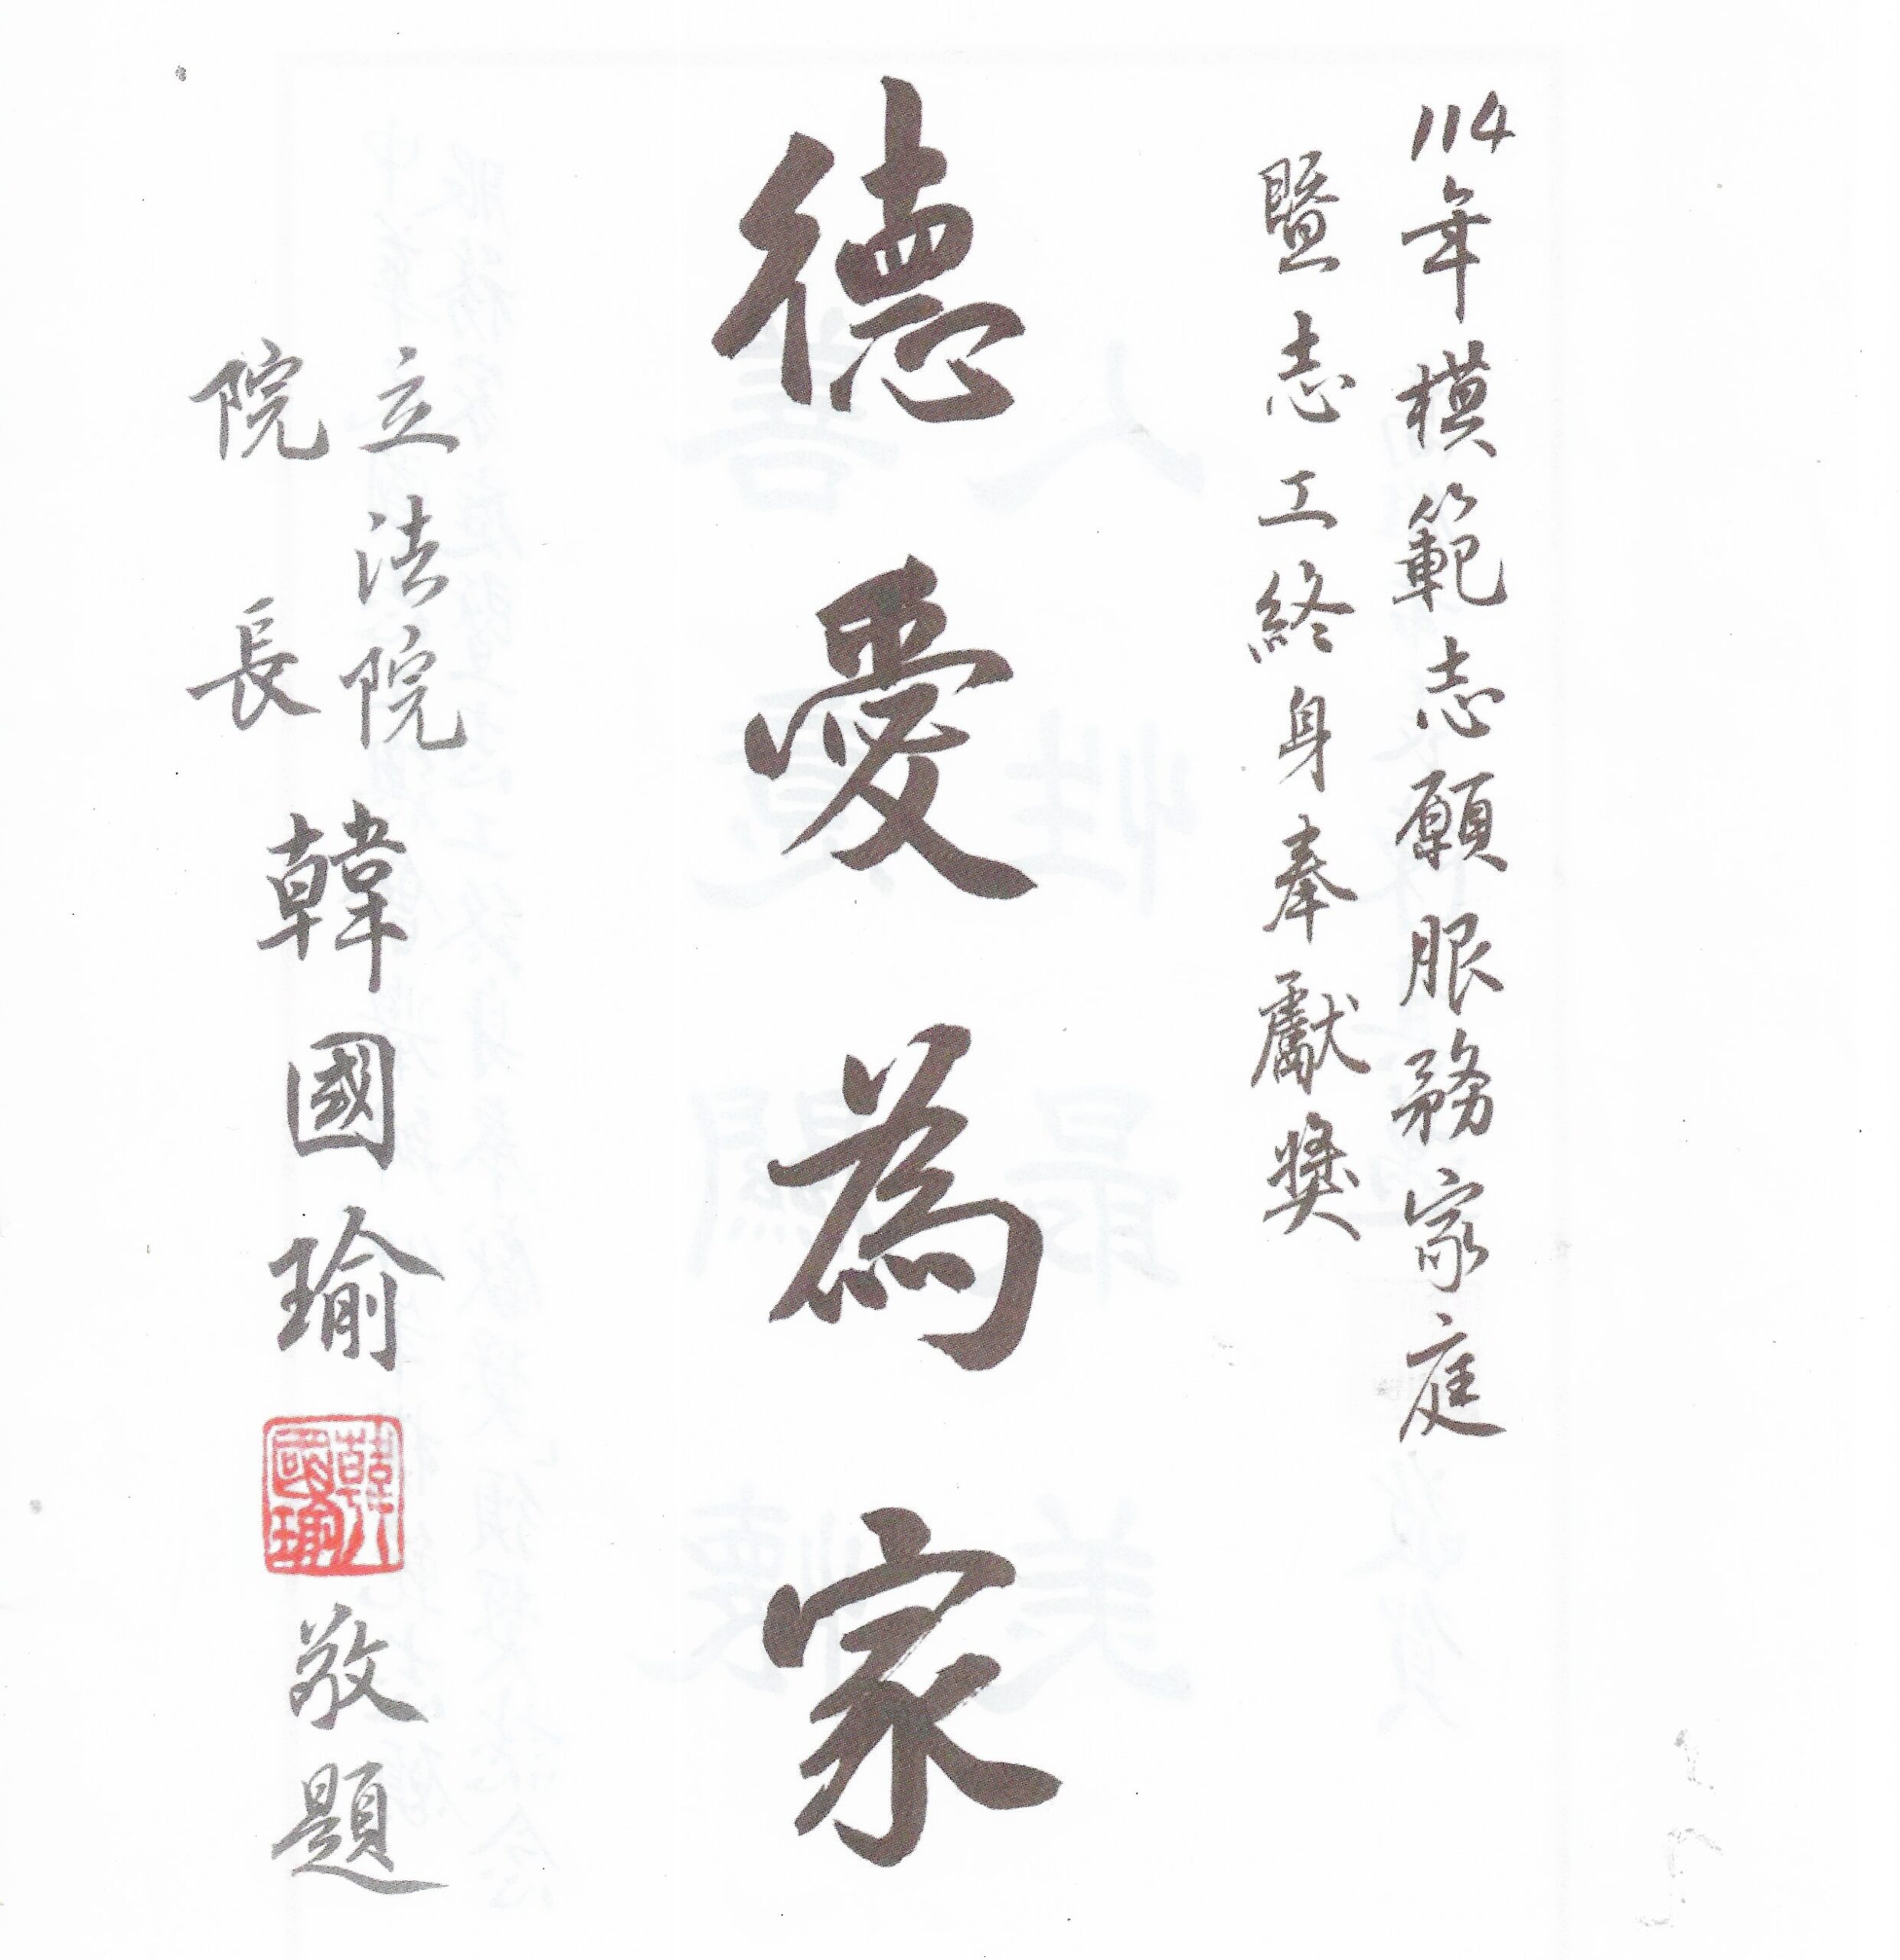 114年模範志願服務家庭
暨志工終身奉獻獎
德愛為家
立法院
院長
韓國瑜
韓國瑜
敬題